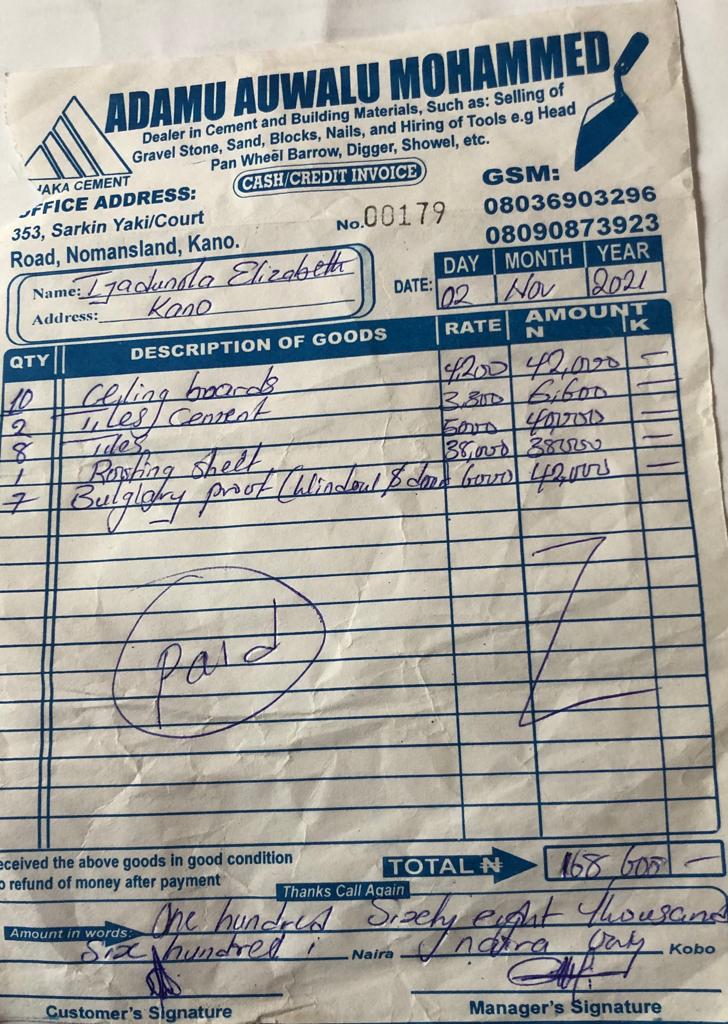 ADAMU AUWALU MOHAMMED
Dealer in Cement and Building Materials, Such as: Selling of
Gravel Stone, Sand, Blocks, Nails, and Hiring of Tools e.g Head
Pan Wheel Barrow, Digger, Showel, etc.
AKA CEMENT
CASH/CREDIT INVOICE
GSM:
08036903296
08090873923
OFFICE ADDRESS:
353, Sarkin Yaki/Court
Road, Nomansland, Kano.
No.00179
Name: Ijadunola Elizabeth
Address: Kano
DATE: DAY MONTH YEAR
02 Nov 2021
QTY DESCRIPTION OF GOODS RATE AMOUNT N K
10 Ceiling boards 4200 42,000 —
2 Tiles cement 3,300 6,600 —
8 Tiles 5000 40,000 —
1 Roofing shelt 38,000 38000 —
7 Bulglary proof (Window & door 6000 42,000 —
paid
eceived the above goods in good condition
o refund of money after payment
TOTAL N 168 600 —
Thanks Call Again
Amount in words: One hundred Sixty eight thousand
Six hundred Naira naira only Kobo
Customer's Signature
Manager's Signature